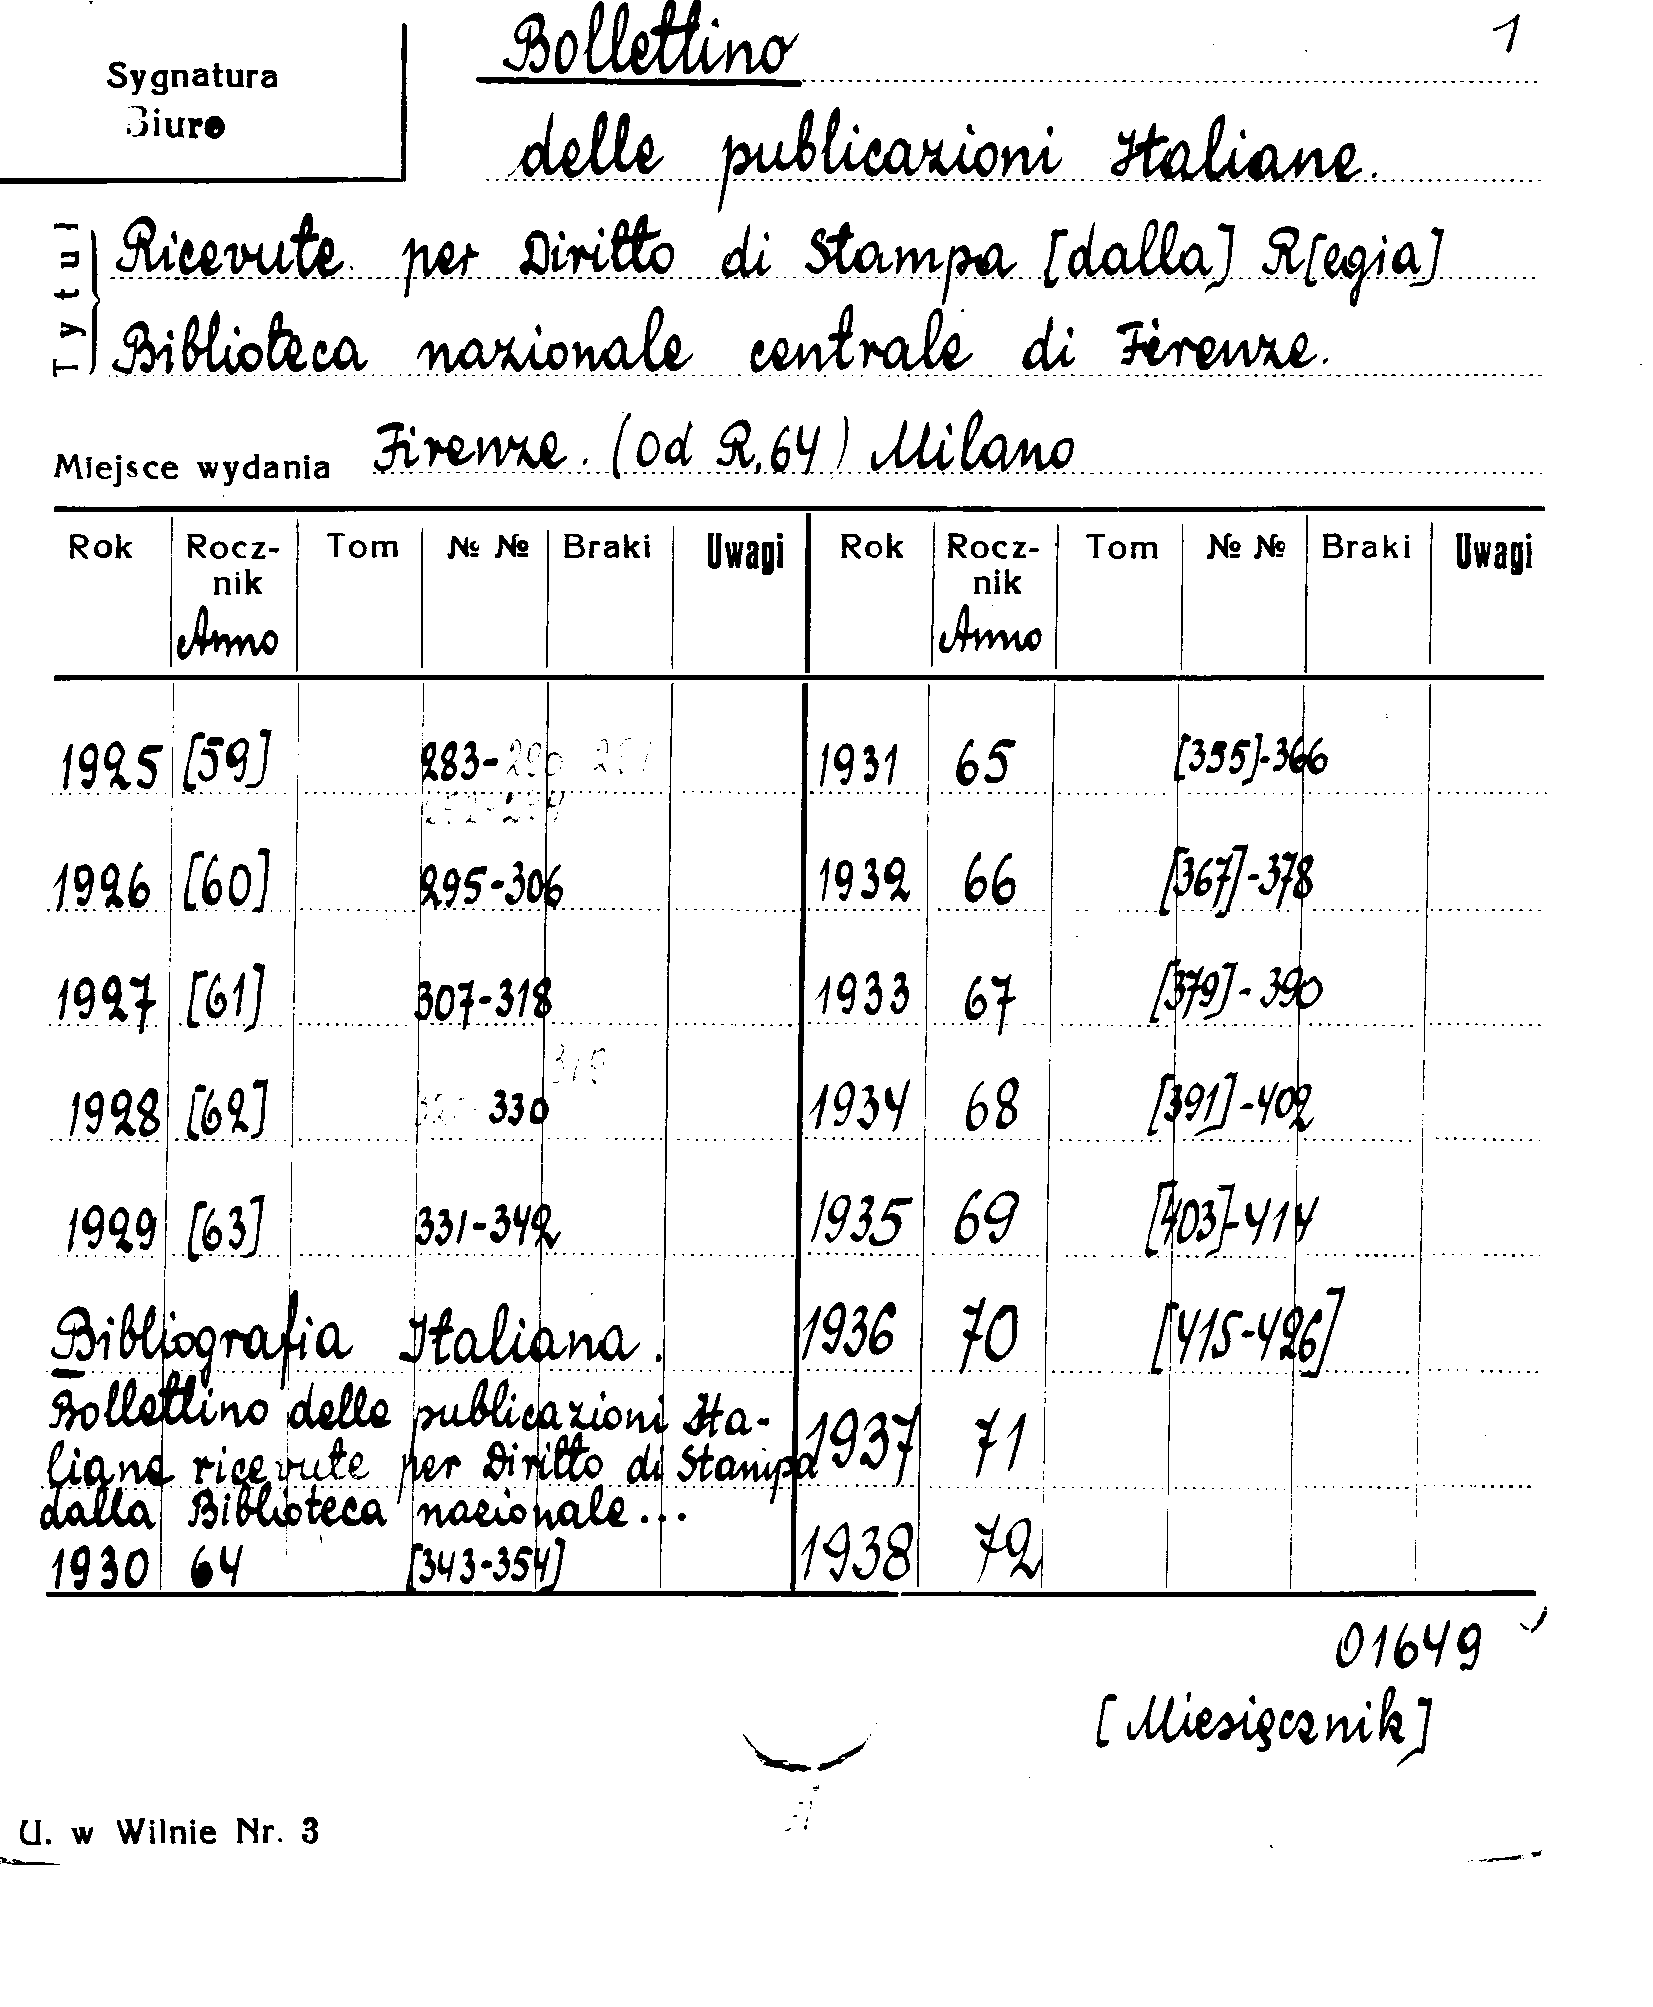 1
Bollettino
Sygnatura
Biuro
delle publicazioni Italiane.
Tytuł
Ricevute per Diritto di Stampa [dalla] R[egia]
Biblioteca nazionale centrale di Firenze.
Miejsce wydania Firenze. (od R. 64) Milano
Rok Rocz- Tom № № Braki Uwagi Rok Rocz- Tom № № Braki Uwagi
nik nik
Anno Anno
1925 [59] 283-290 291 1931 65 [355]-366
292-294
1926 [60] 295-306 1932 66 [367]-378
1927 [61] 307-318 1933 67 [379]-390
319
1928 [62] 330 1934 68 [391]-402
1929 [63] 331-342 1935 69 [403]-414
Bibliografia Italiana. 1936 70 [415-426]
Bollettino delle publicazioni Ita- 1937 71
liane ricevute per Diritto di Stampa
dalla Biblioteca nacionale... 1938 72
1930 64 [343-354]
01649
[Miesięcznik]
U. w Wilnie Nr. 3